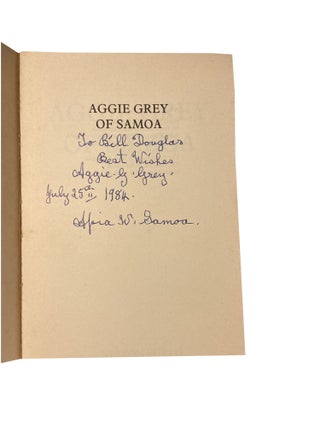 AGGIE GREY
OF SAMOA
To Bill Douglas
Best Wishes
Aggie. G. Grey.
July 25th 1984.
Apia W. Samoa.